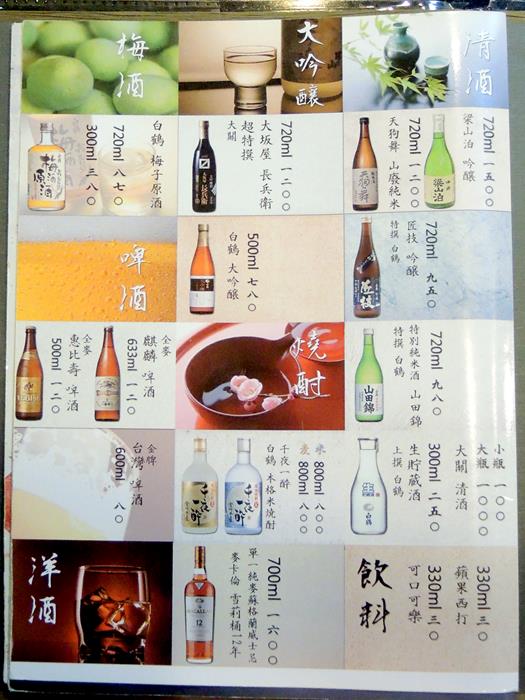 清酒
梁山泊 吟釀
720ml 一五〇〇
天狗舞 山廢純米
720ml 一二〇〇
特撰 白鶴
匠技 吟釀
720ml 九五〇
特撰 白鶴
特別純米酒 山田錦
720ml 九八〇
上撰 白鶴
生貯蔵酒
300ml 二五〇
大關 清酒
大瓶 一〇〇〇
小瓶 一〇〇
飲料
蘋果西打
330ml 三〇
可口可樂
330ml 三〇
大吟釀
大關
超特撰
大坂屋 長兵衛
720ml 一二〇〇
白鶴 大吟釀
500ml 七八〇
燒酎
白鶴 本格米燒酎
千夜一酔
米 800ml 八〇〇
麥 800ml 八〇〇
單一純麥蘇格蘭威士忌
麥卡倫 雪莉桶12年
700ml 一六〇〇
梅酒
白鶴 梅子原酒
720ml 八七〇
300ml 三八〇
啤酒
全麥
麒麟 啤酒
633ml 一二〇
全麥
惠比壽 啤酒
500ml 一二〇
金牌
台灣啤酒
600ml 八〇
洋酒
梁山泊
天狗舞
匠技
山田錦
生
白鶴
長兵衛
千夜一酔
千夜一酔
MACALLAN
12
梅酒原酒